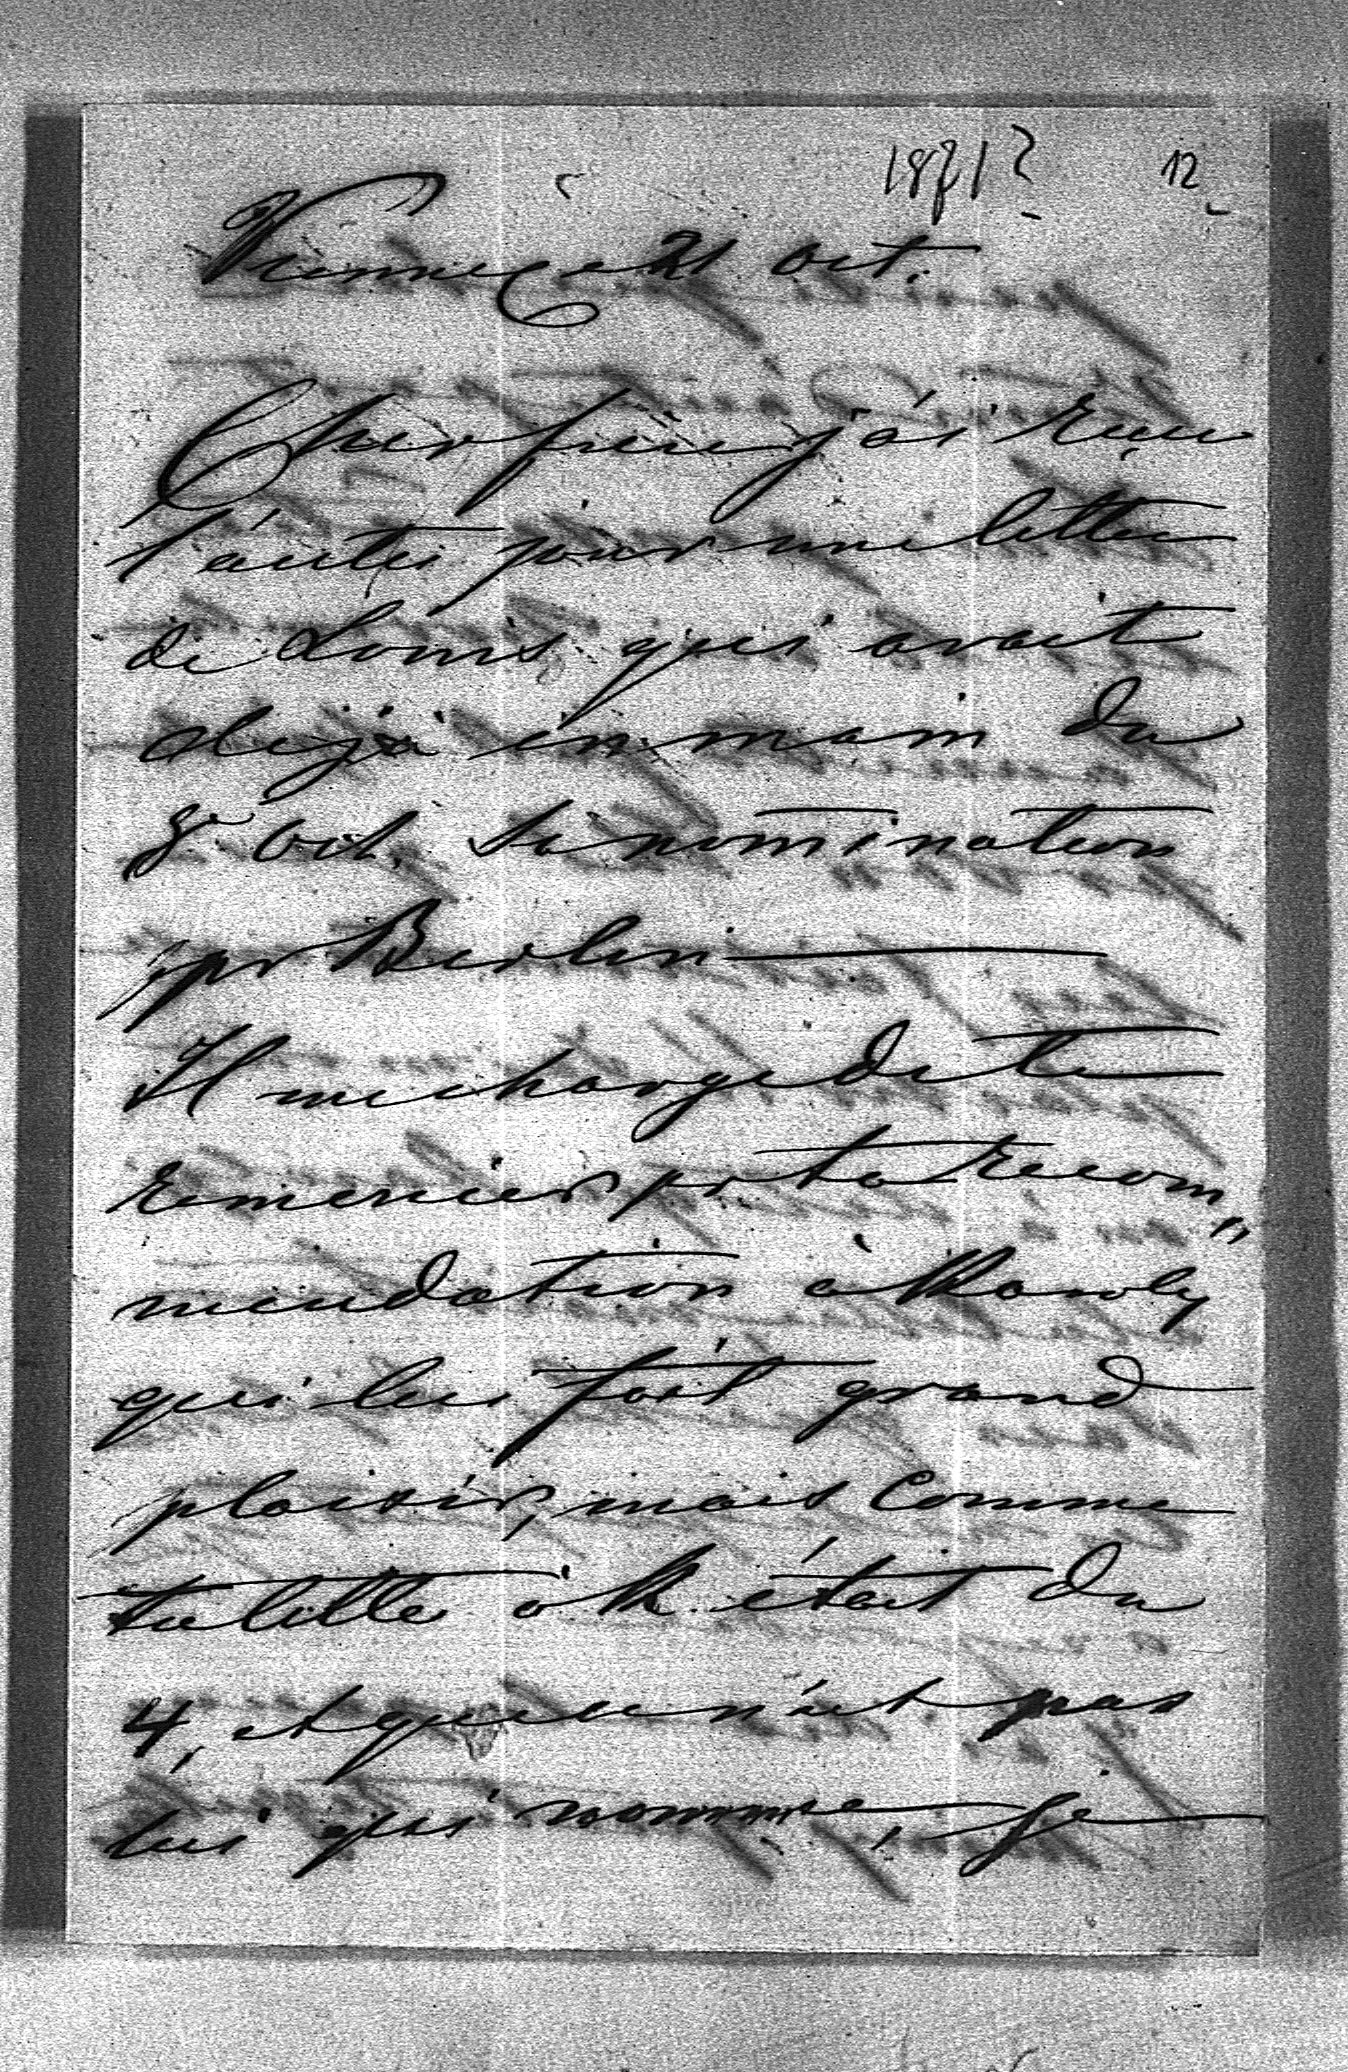 1871? 12
Vienne ce 21 oct.
Cher frère j'ai reçu
l'autre jour une lettre
de Louis qui avait
déjà en main du
3 oct. sa nomination
pr Berlin —
Il me charge de te
remercier pr ta recom„
mendation à Karoly
qui lui fait grand
plaisir, mais comme
ta lettre à K. était du
4, et que ce n'est pas
lui qui nomme, je